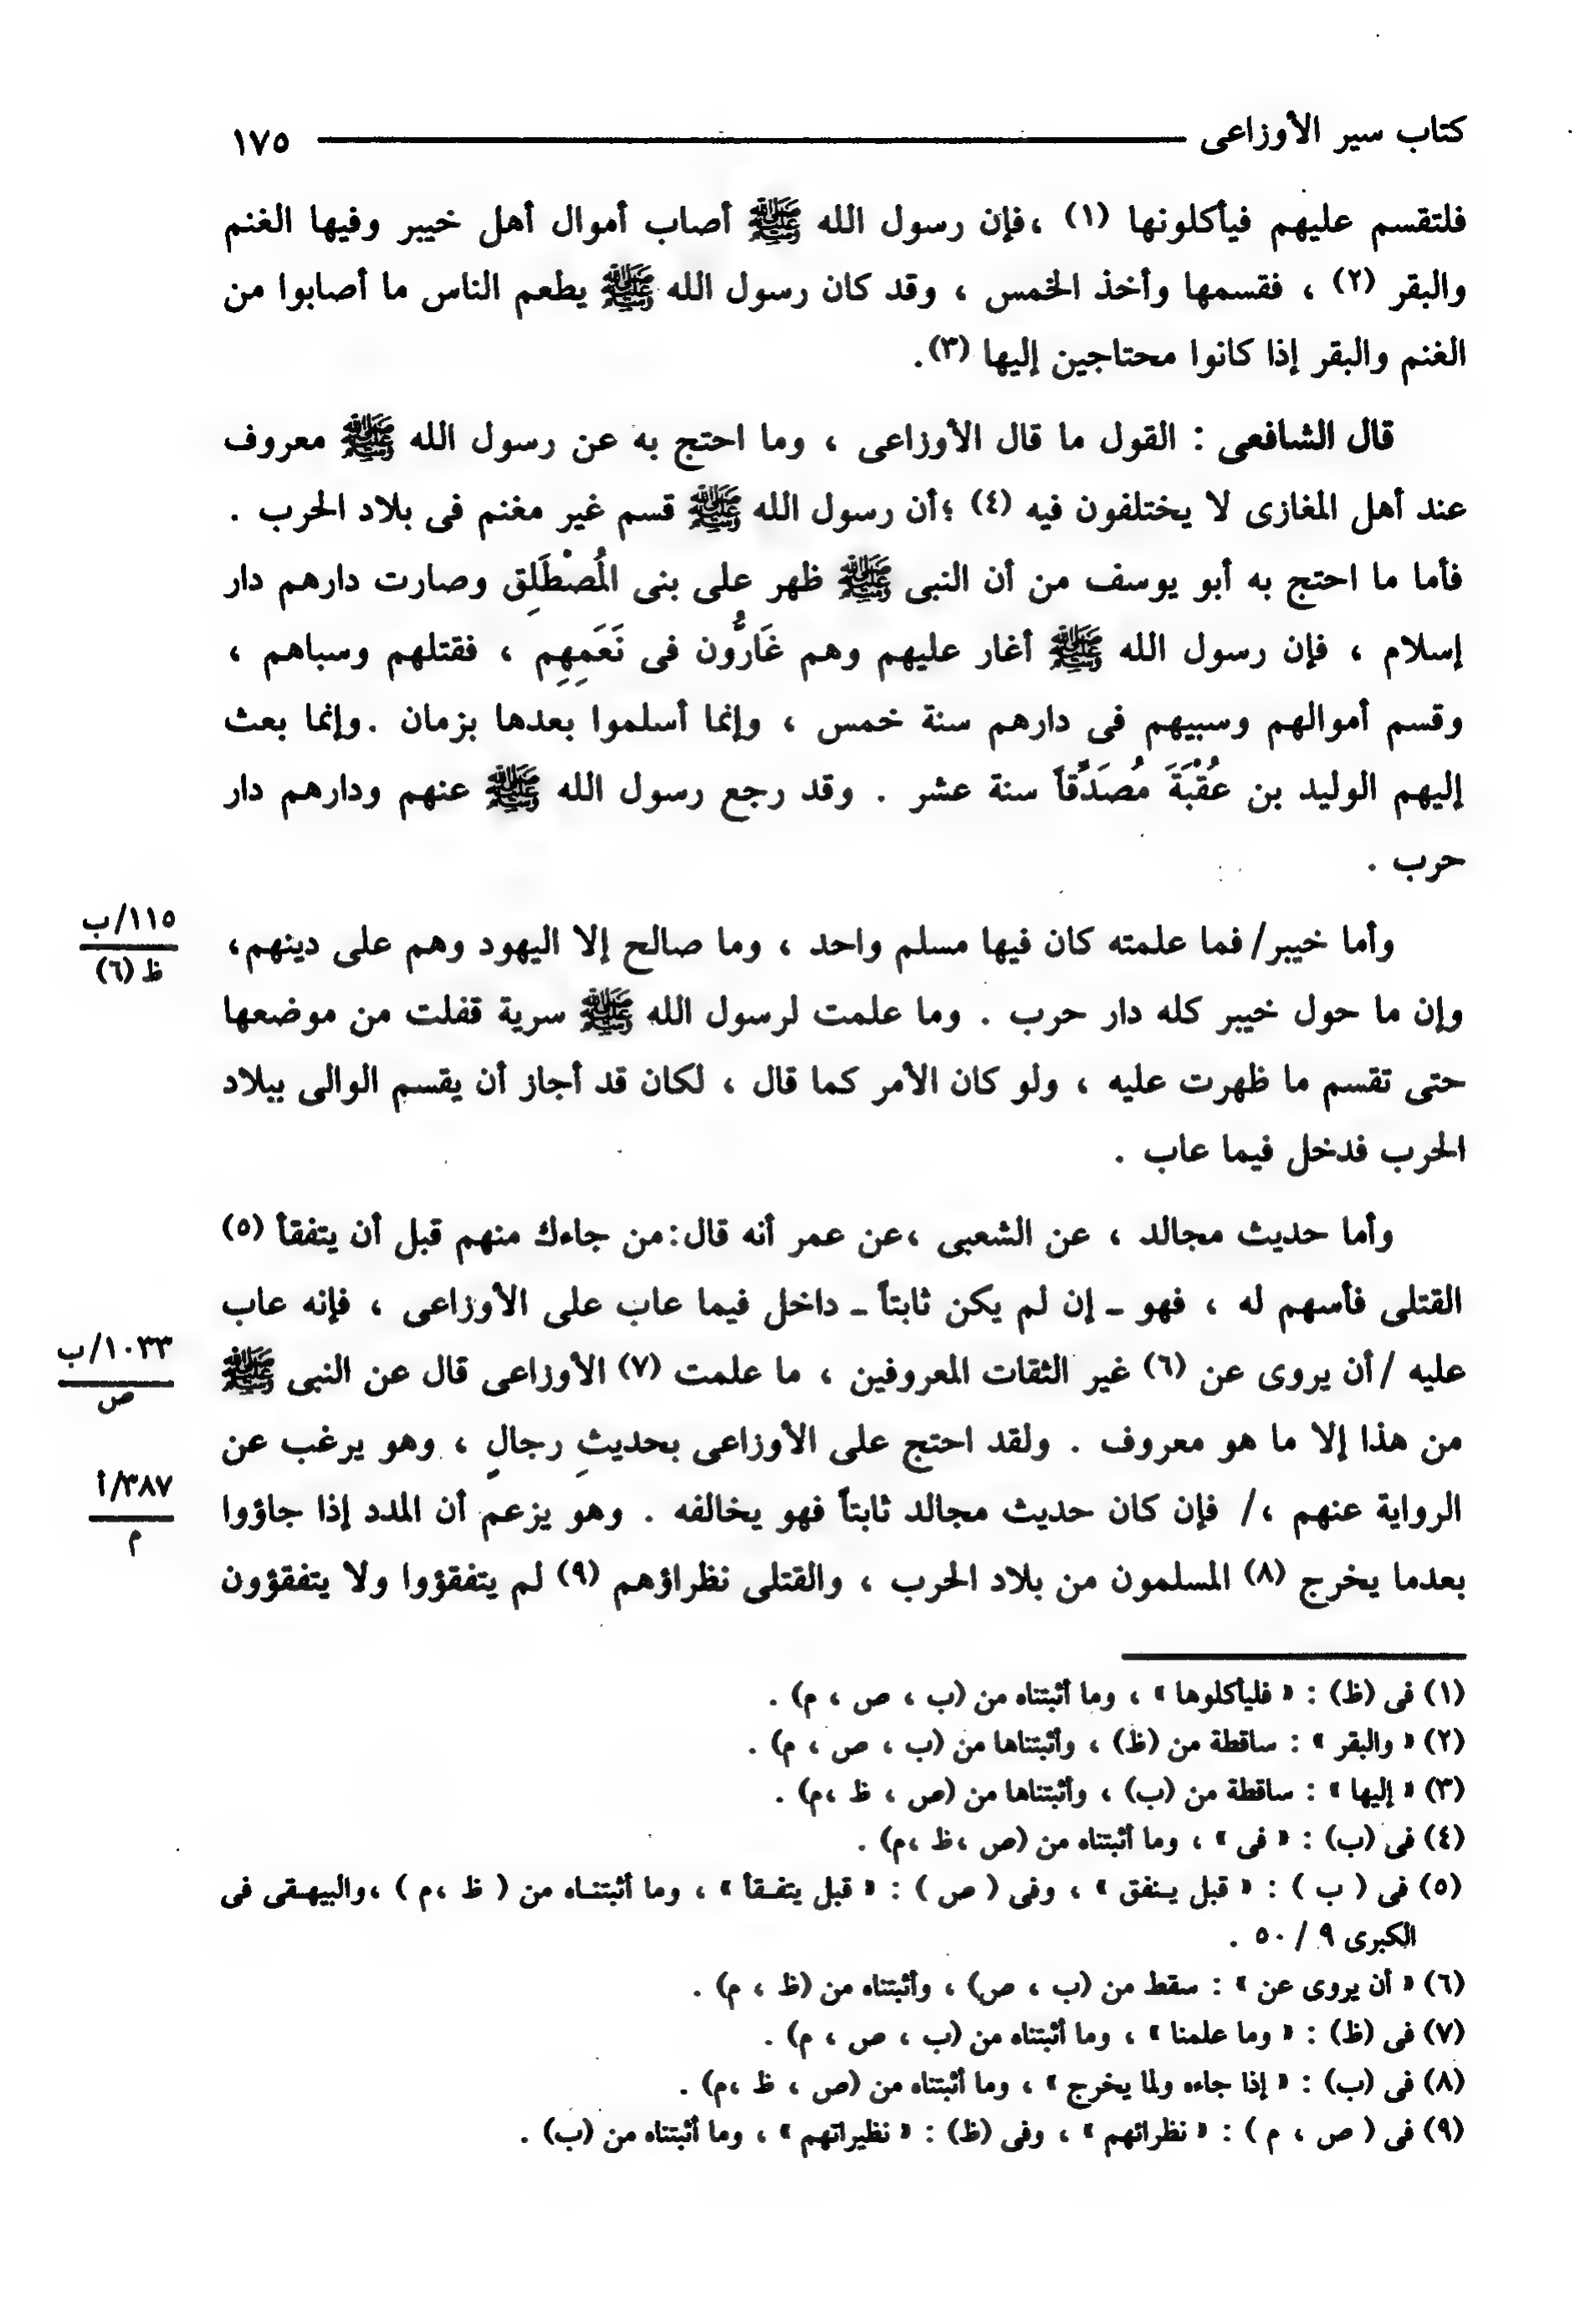 كتاب سير الأوزاعى ١٧٥
فلتقسم عليهم فيأكلونها (١) ،فإن رسول الله ﷺ أصاب أموال أهل خيبر وفيها الغنم
والبقر (٢) ، فقسمها وأخذ الخمس ، وقد كان رسول الله ﷺ يطعم الناس ما أصابوا من
الغنم والبقر إذا كانوا محتاجين إليها (٣).
قال الشافعى : القول ما قال الأوزاعى ، وما احتج به عن رسول الله ﷺ معروف
عند أهل المغازى لا يختلفون فيه (٤) ؛أن رسول الله ﷺ قسم غير مغنم فى بلاد الحرب .
فأما ما احتج به أبو يوسف من أن النبى ﷺ ظهر على بنى المُصْطَلِق وصارت دارهم دار
إسلام ، فإن رسول الله ﷺ أغار عليهم وهم غَارُّون فى نَعَمِهِم ، فقتلهم وسباهم ،
وقسم أموالهم وسبيهم فى دارهم سنة خمس ، وإنما أسلموا بعدها بزمان .وإنما بعث
إليهم الوليد بن عُقْبَةَ مُصَدِّقاً سنة عشر . وقد رجع رسول الله ﷺ عنهم ودارهم دار
حرب .
وأما خيبر/ فما علمته كان فيها مسلم واحد ، وما صالح إلا اليهود وهم على دينهم،
١١٥/ب
ظ (٦)
وإن ما حول خيبر كله دار حرب . وما علمت لرسول الله ﷺ سرية قفلت من موضعها
حتى تقسم ما ظهرت عليه ، ولو كان الأمر كما قال ، لكان قد أجاز أن يقسم الوالى ببلاد
الحرب فدخل فيما عاب .
وأما حديث مجالد ، عن الشعبى ،عن عمر أنه قال:من جاءك منهم قبل أن يتفقأ (٥)
القتلى فأسهم له ، فهو ـ إن لم يكن ثابتاً ـ داخل فيما عاب على الأوزاعى ، فإنه عاب
عليه /أن يروى عن (٦) غير الثقات المعروفين ، ما علمت (٧) الأوزاعى قال عن النبى ﷺ
١٠٣٣/ب
ص
من هذا إلا ما هو معروف . ولقد احتج على الأوزاعى بحديثِ رجالٍ ، وهو يرغب عن
الرواية عنهم ،/ فإن كان حديث مجالد ثابتاً فهو يخالفه . وهو يزعم أن المدد إذا جاؤوا
٣٨٧/أ
م
بعدما يخرج (٨) المسلمون من بلاد الحرب ، والقتلى نظراؤهم (٩) لم يتفقؤوا ولا يتفقؤون
(١) فى (ظ) : « فليأكلوها » ، وما أثبتناه من (ب ، ص ، م) .
(٢) « والبقر » : ساقطة من (ظ) ، وأثبتناها من (ب ، ص ، م) .
(٣) « إليها » : ساقطة من (ب) ، وأثبتناها من (ص ، ظ ،م) .
(٤) فى (ب) : « فى » ، وما أثبتناه من (ص ،ظ ،م) .
(٥) فى ( ب ) : « قبل يـنفق » ، وفى ( ص ) : « قبل يتفـقأ » ، وما أثبتنـاه من ( ظ ،م ) ،والبيهـقى فى
الكبرى ٩ / ٥٠ .
(٦) « أن يروى عن » : سقط من (ب ، ص) ، وأثبتناه من (ظ ، م) .
(٧) فى (ظ) : « وما علمنا » ، وما أثبتناه من (ب ، ص ، م) .
(٨) فى (ب) : « إذا جاءه ولما يخرج » ، وما أثبتناه من (ص ، ظ ،م) .
(٩) فى ( ص ، م ) : « نظرائهم » ، وفى (ظ) : « نظيراتهم » ، وما أثبتناه من (ب) .